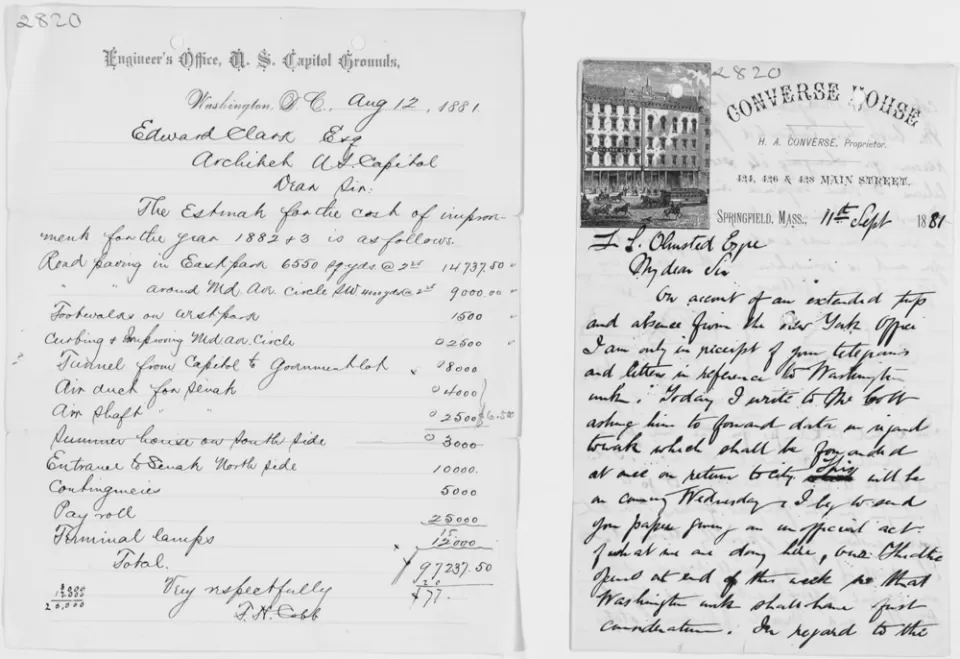 2820
Engineer's Office, U. S. Capitol Grounds,
Washington, D. C., Aug 12, 1881
Edward Clark Esq
Architect U.S. Capitol
Dear Sir:
The Estimate for the cost of improve-
ments for the year 1882+3 is as follows.
Road paving in East park 6550 sq. yds @ 2.25 14737.50 "
" " around Md. Av. Circle SW 4000 yds @ 2.25 9000.00 "
Footwalks on West park 1500 "
Curbing & Improving Md av. Circle 2500 "
? Tunnel from Capitol to Government lot x 8000
Air duct for Senate 4000
Air Shaft " " 2500
Summer house on South side 3000
Entrance to Senate North side 10000.
Contingencies 5000
Pay roll 25000
15
Terminal lamps 12000
Total. 97237.50
20
$77.
Very respectfully
F. H. Cobb
20,000
2820
CONVERSE HOUSE
H. A. CONVERSE, Proprietor.
424, 426 & 428 MAIN STREET.
SPRINGFIELD, MASS., 11th Sept 1881
F. L. Olmsted Esqre
My dear Sir
On account of an extended trip
and absence from the New York Office
I am only in receipt of your telegrams
and letters in reference to Washington
work. Today I write to Mr Cobb
asking him to forward data in regard
to work which shall be forwarded
at once on return to city. This will be
on coming Wednesday. I beg to send
you paper giving an unofficial act.
of what we are doing here, our Theatre
opens at end of this week so that
Washington work shall have first
consideration. In regard to the